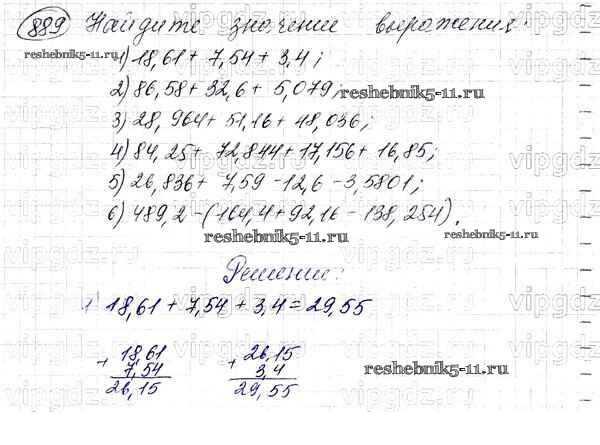 889 Найдите значение выражения:
1) 18,61 + 7,54 + 3,4;
2) 86,58 + 32,6 + 5,079;
reshebnik5-11.ru
3) 28,964 + 51,16 + 48,036;
4) 84,25 + 72,844 + 17,156 + 16,85;
5) 26,836 + 7,59 - 12,6 - 3,5801;
6) 489,2 - (164,4 + 92,16 - 138,254).
reshebnik5-11.ru
Решение:
1) 18,61 + 7,54 + 3,4 = 29,55
+ 18,61
7,54
26,15
+ 26,15
3,4
29,55
reshebnik5-11.ru
reshebnik5-11.ru
vipgdz.ru